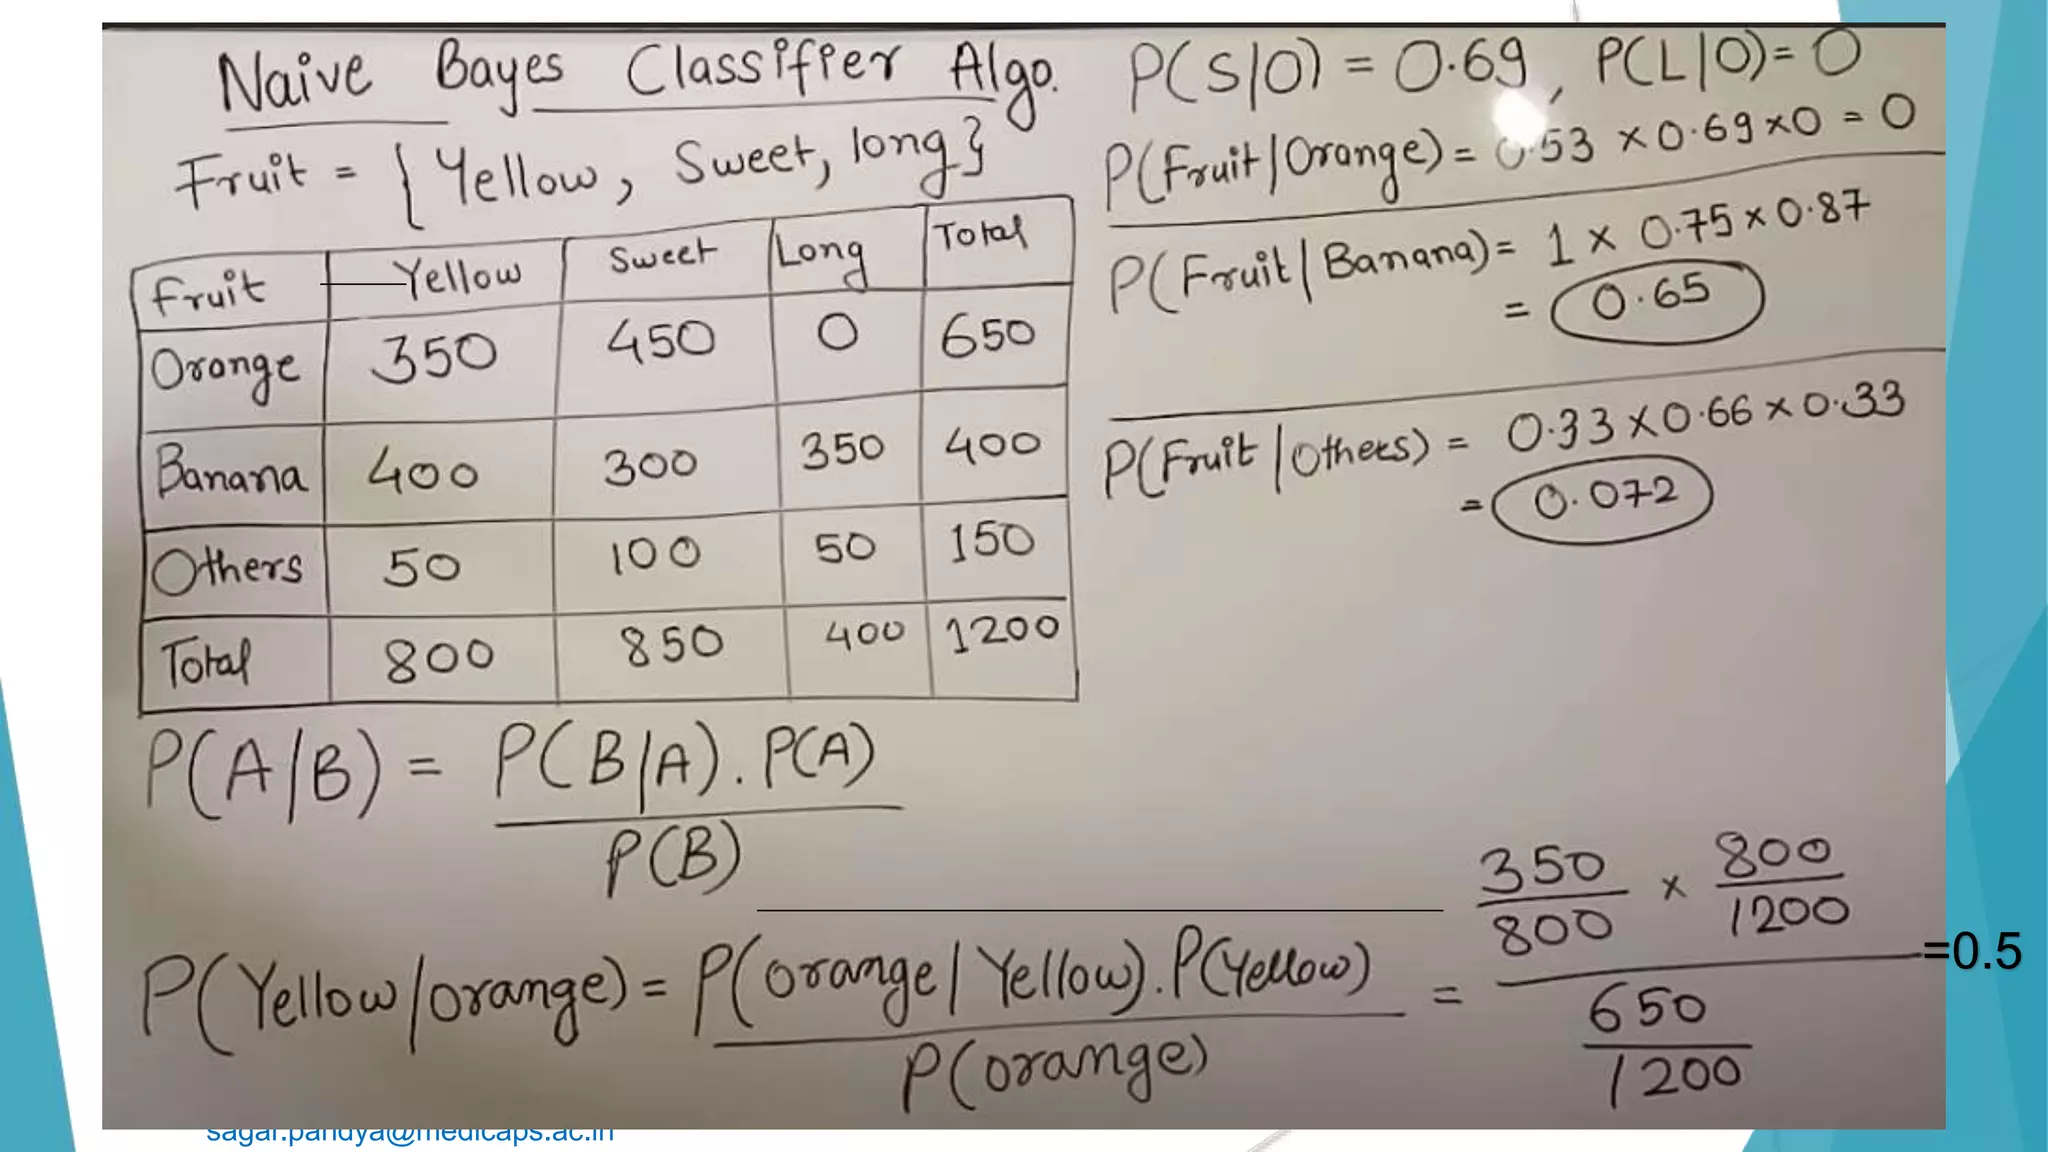 Naive Bayes Classifier Algo.
Fruit = { Yellow, Sweet, long}
Fruit Yellow Sweet Long Total
Orange 350 450 0 650
Banana 400 300 350 400
Others 50 100 50 150
Total 800 850 400 1200
P(A/B) = P(B/A). P(A)
P(B)
P(Yellow/orange) = P(orange/Yellow). P(Yellow)
P(orange)
= 350/800 x 800/1200
650/1200
=0.5
P(S|O) = 0.69, P(L|O) = 0
P(Fruit/Orange) = 0.53 x 0.69 x 0 = 0
P(Fruit/Banana) = 1 x 0.75 x 0.87
= 0.65
P(Fruit/Others) = 0.33 x 0.66 x 0.33
= 0.072
sagar.pandya@medicaps.ac.in